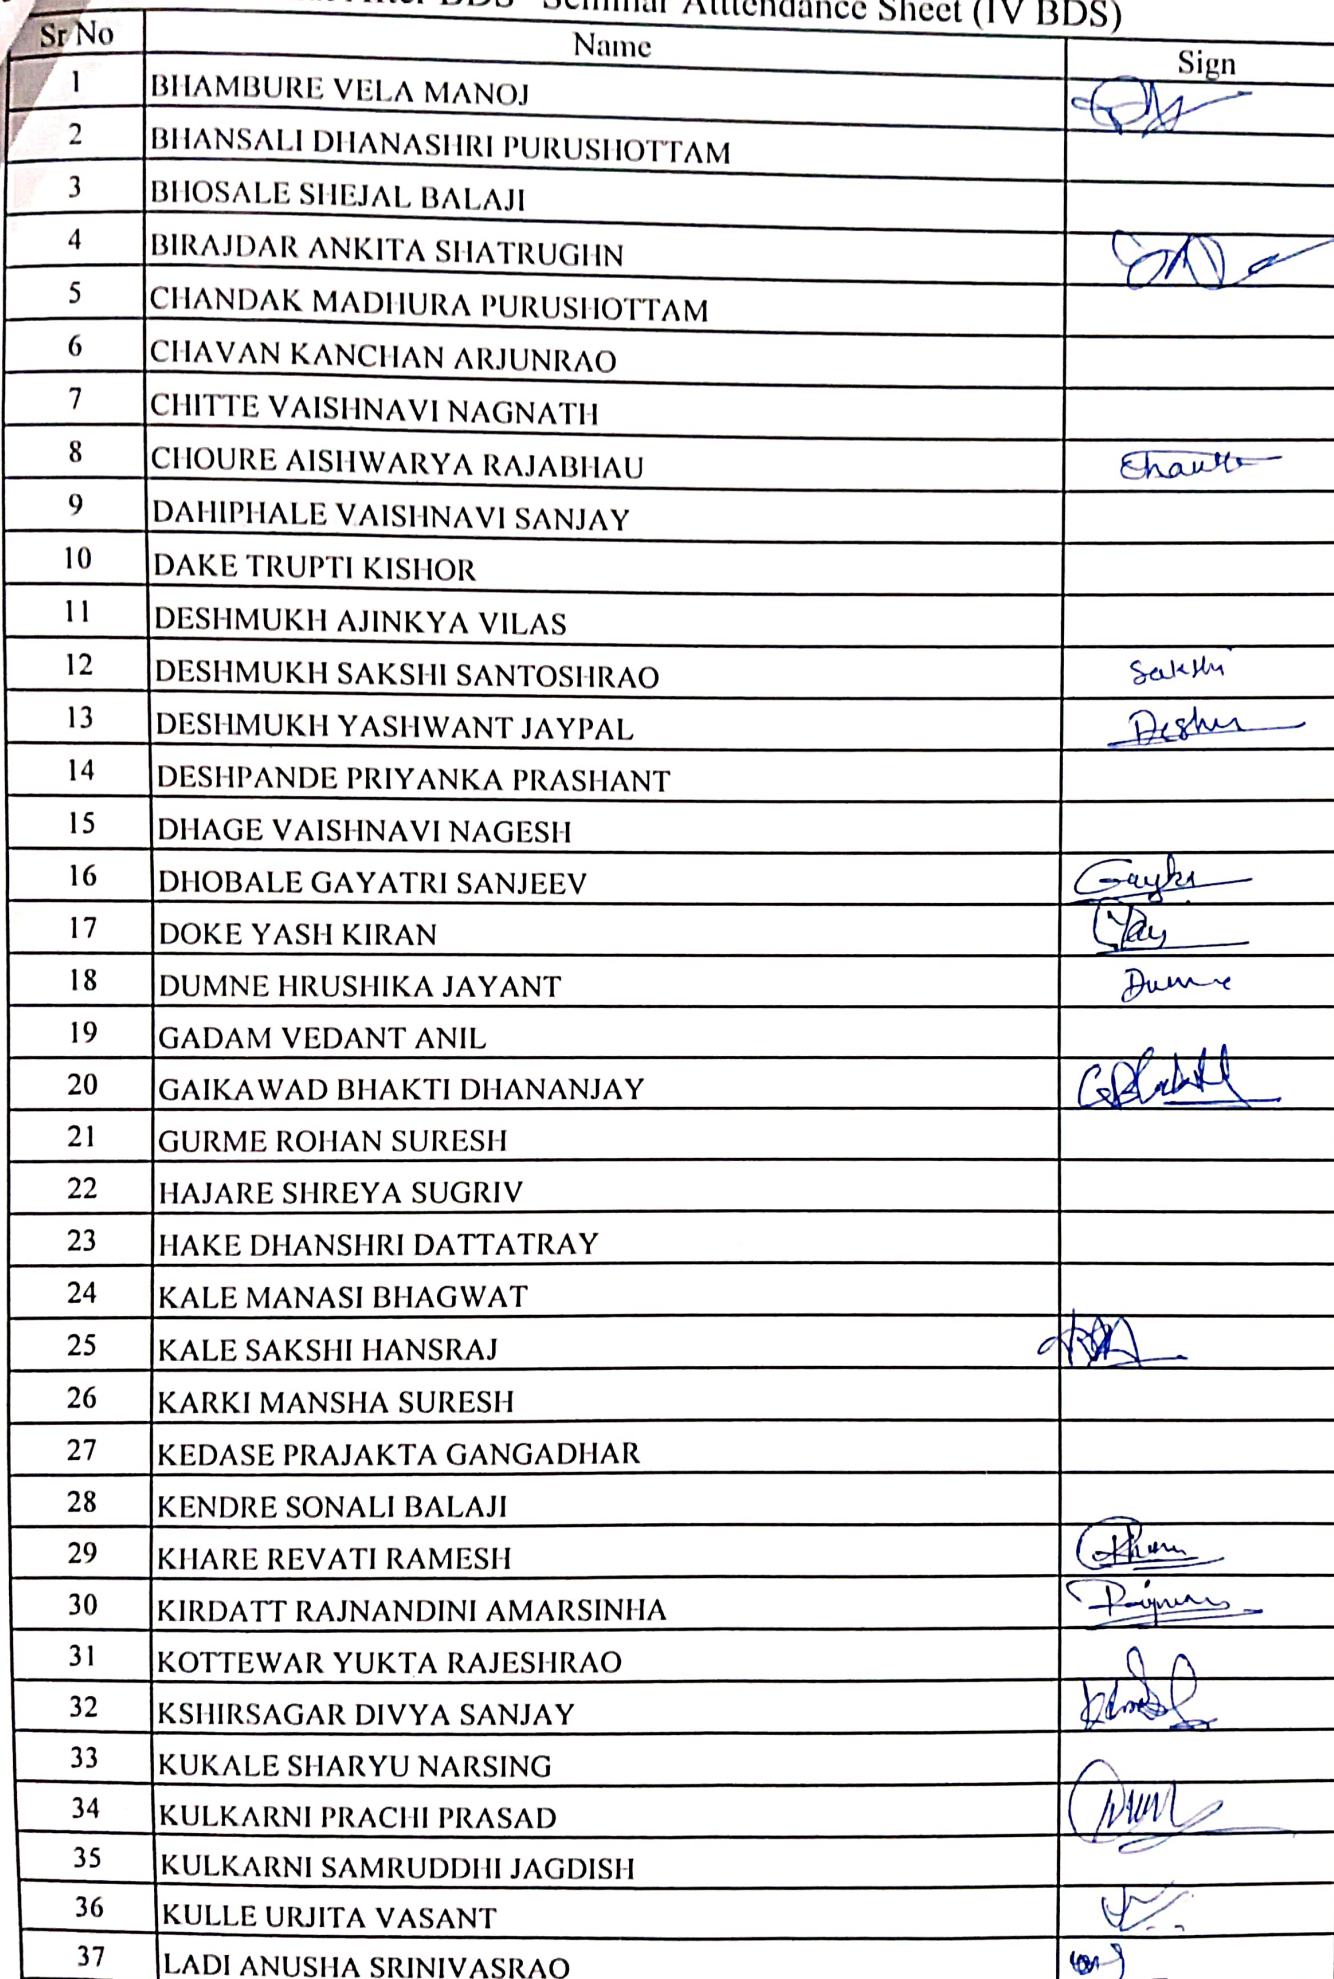 After BDS" Seminar Atttendance Sheet (IV BDS)
Sr No Name Sign
1 BHAMBURE VELA MANOJ
2 BHANSALI DHANASHRI PURUSHOTTAM
3 BHOSALE SHEJAL BALAJI
4 BIRAJDAR ANKITA SHATRUGHN
5 CHANDAK MADHURA PURUSHOTTAM
6 CHAVAN KANCHAN ARJUNRAO
7 CHITTE VAISHNAVI NAGNATH
8 CHOURE AISHWARYA RAJABHAU
9 DAHIPHALE VAISHNAVI SANJAY
10 DAKE TRUPTI KISHOR
11 DESHMUKH AJINKYA VILAS
12 DESHMUKH SAKSHI SANTOSHRAO Sakshi
13 DESHMUKH YASHWANT JAYPAL
14 DESHPANDE PRIYANKA PRASHANT
15 DHAGE VAISHNAVI NAGESH
16 DHOBALE GAYATRI SANJEEV
17 DOKE YASH KIRAN
18 DUMNE HRUSHIKA JAYANT Dumne
19 GADAM VEDANT ANIL
20 GAIKAWAD BHAKTI DHANANJAY
21 GURME ROHAN SURESH
22 HAJARE SHREYA SUGRIV
23 HAKE DHANSHRI DATTATRAY
24 KALE MANASI BHAGWAT
25 KALE SAKSHI HANSRAJ
26 KARKI MANSHA SURESH
27 KEDASE PRAJAKTA GANGADHAR
28 KENDRE SONALI BALAJI
29 KHARE REVATI RAMESH
30 KIRDATT RAJNANDINI AMARSINHA
31 KOTTEWAR YUKTA RAJESHRAO
32 KSHIRSAGAR DIVYA SANJAY
33 KUKALE SHARYU NARSING
34 KULKARNI PRACHI PRASAD
35 KULKARNI SAMRUDDHI JAGDISH
36 KULLE URJITA VASANT
37 LADI ANUSHA SRINIVASRAO